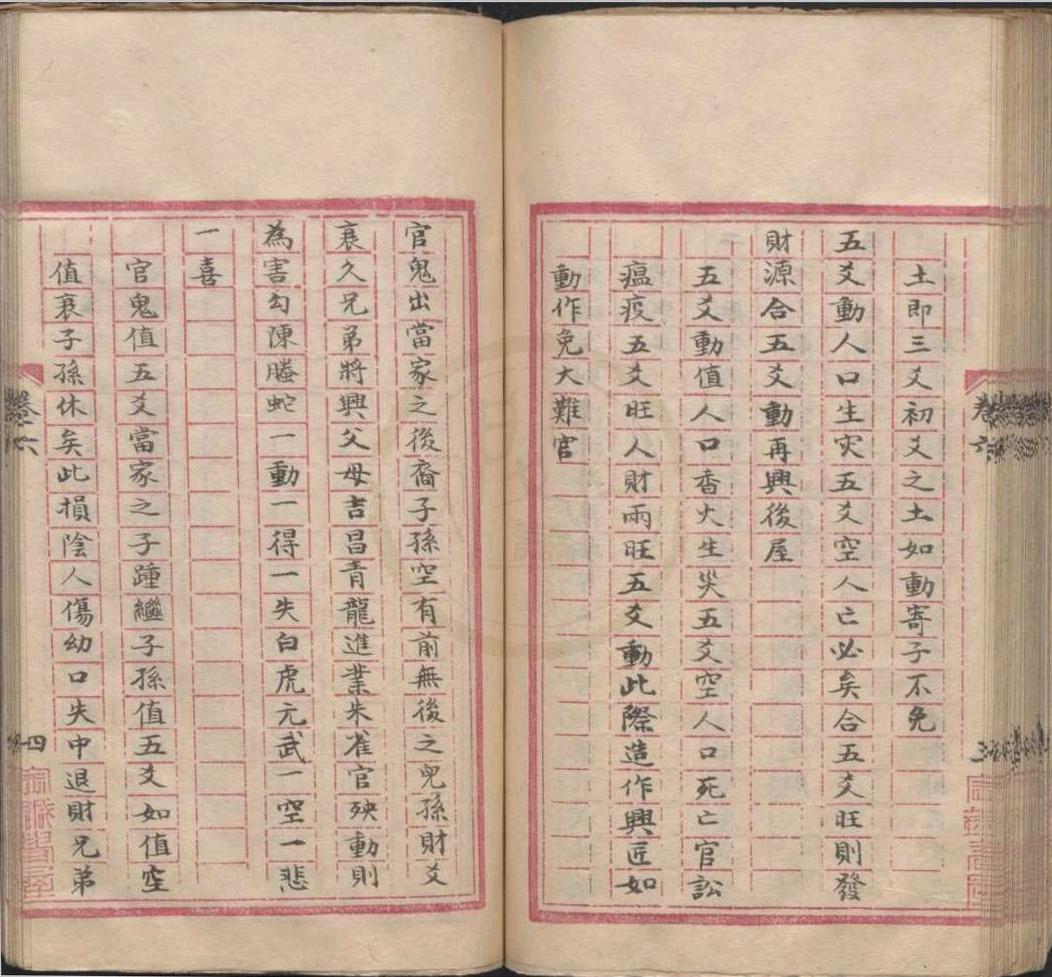 土即三爻初爻之土如動寄子不免
五爻動人口生灾五爻空人亡必矣合五爻旺則發
財源合五爻動再興後屋
五爻動值人口香火生災五爻空人口死亡官訟
瘟疫五爻旺人財兩旺五爻動此際造作興匠如
動作免大難官
卷六
三
官鬼出當家之後裔子孫空有前無後之兒孫財爻
衰久兄弟將興父母吉昌青龍進業朱雀官殃動則
為害勾陳螣蛇一動一得一失白虎元武一空一悲
一喜
官鬼值五爻當家之子踵繼子孫值五爻如值空
值衰子孫休矣此損陰人傷幼口失中退財兄弟
卷六
四